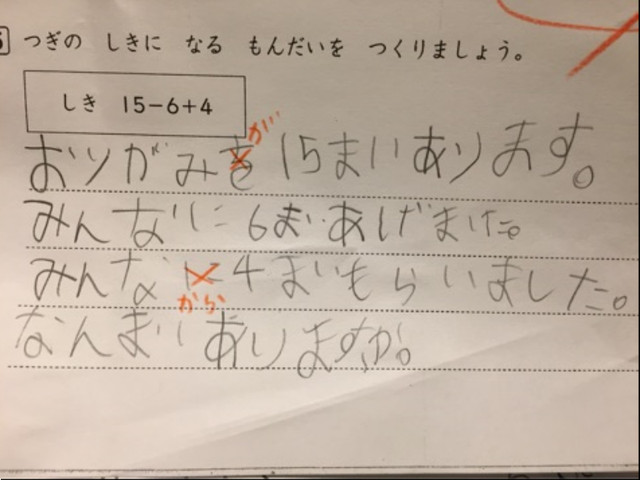 つぎの しきに なる もんだいを つくりましょう。
しき 15-6+4
が
おりがみを 15まいあります。
みんなに 6まいあげました。
みんなに 4まいもらいました。
から
なんまいありますか。